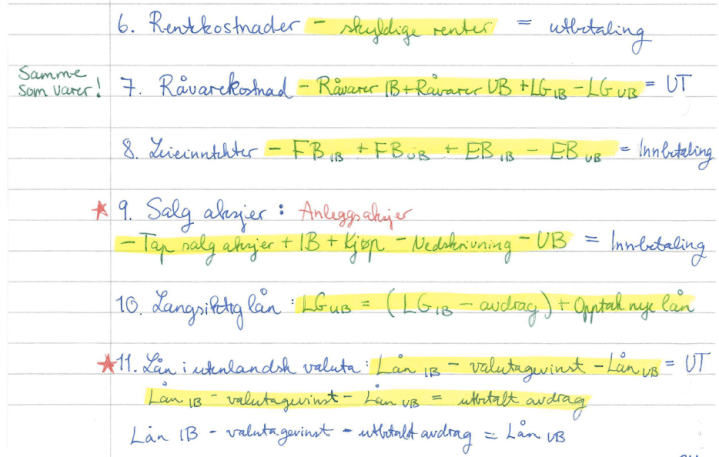 6. Rentekostnader - skyldige renter = utbetaling
Samme
som varer!
7. Råvarekostnad - Råvarer IB + Råvarer UB + LG IB - LG UB = UT
8. Leieinntekter - FB IB + FB UB + EB IB - EB UB = Innbetaling
★ 9. Salg aksjer : Anleggsaksjer
- Tap salg aksjer + IB + Kjøp - Nedskrivning - UB = Innbetaling
10. Langsiktig lån : LG UB = (LG IB - avdrag) + Opptak nye lån
★ 11. Lån i utenlandsk valuta : Lån IB - valutagevinst - Lån UB = UT
Lån IB - valutagevinst - Lån UB = utbetalt avdrag
Lån IB - valutagevinst - utbetalt avdrag = Lån UB